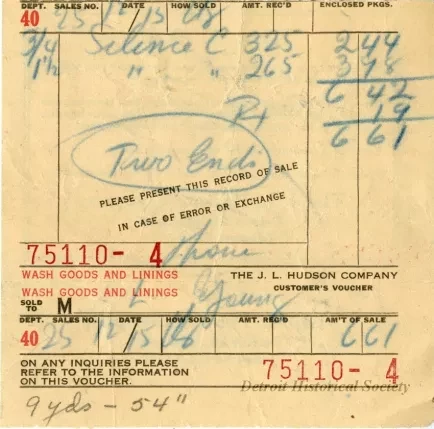 DEPT. SALES NO. DATE HOW SOLD AMT. REC'D ENCLOSED PKGS.
40 25 12/15
3/4 Silence C 325 2 44
1 1/2 " " 265 3 98
6 42
19
6 61
Two Ends
PLEASE PRESENT THIS RECORD OF SALE
IN CASE OF ERROR OR EXCHANGE
75110- 4
WASH GOODS AND LININGS THE J. L. HUDSON COMPANY
WASH GOODS AND LININGS CUSTOMER'S VOUCHER
SOLD TO M L Young
DEPT. SALES NO. DATE HOW SOLD AMT. REC'D AM'T OF SALE
40 25 12/15 6 61
ON ANY INQUIRIES PLEASE
REFER TO THE INFORMATION
ON THIS VOUCHER.
75110- 4
Detroit Historical Society
9 yds - 54"